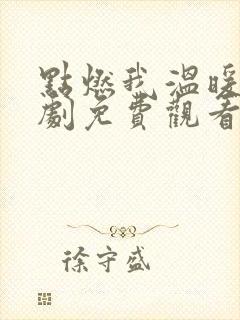 點燃我溫暖
劇免費觀看
徐守盛